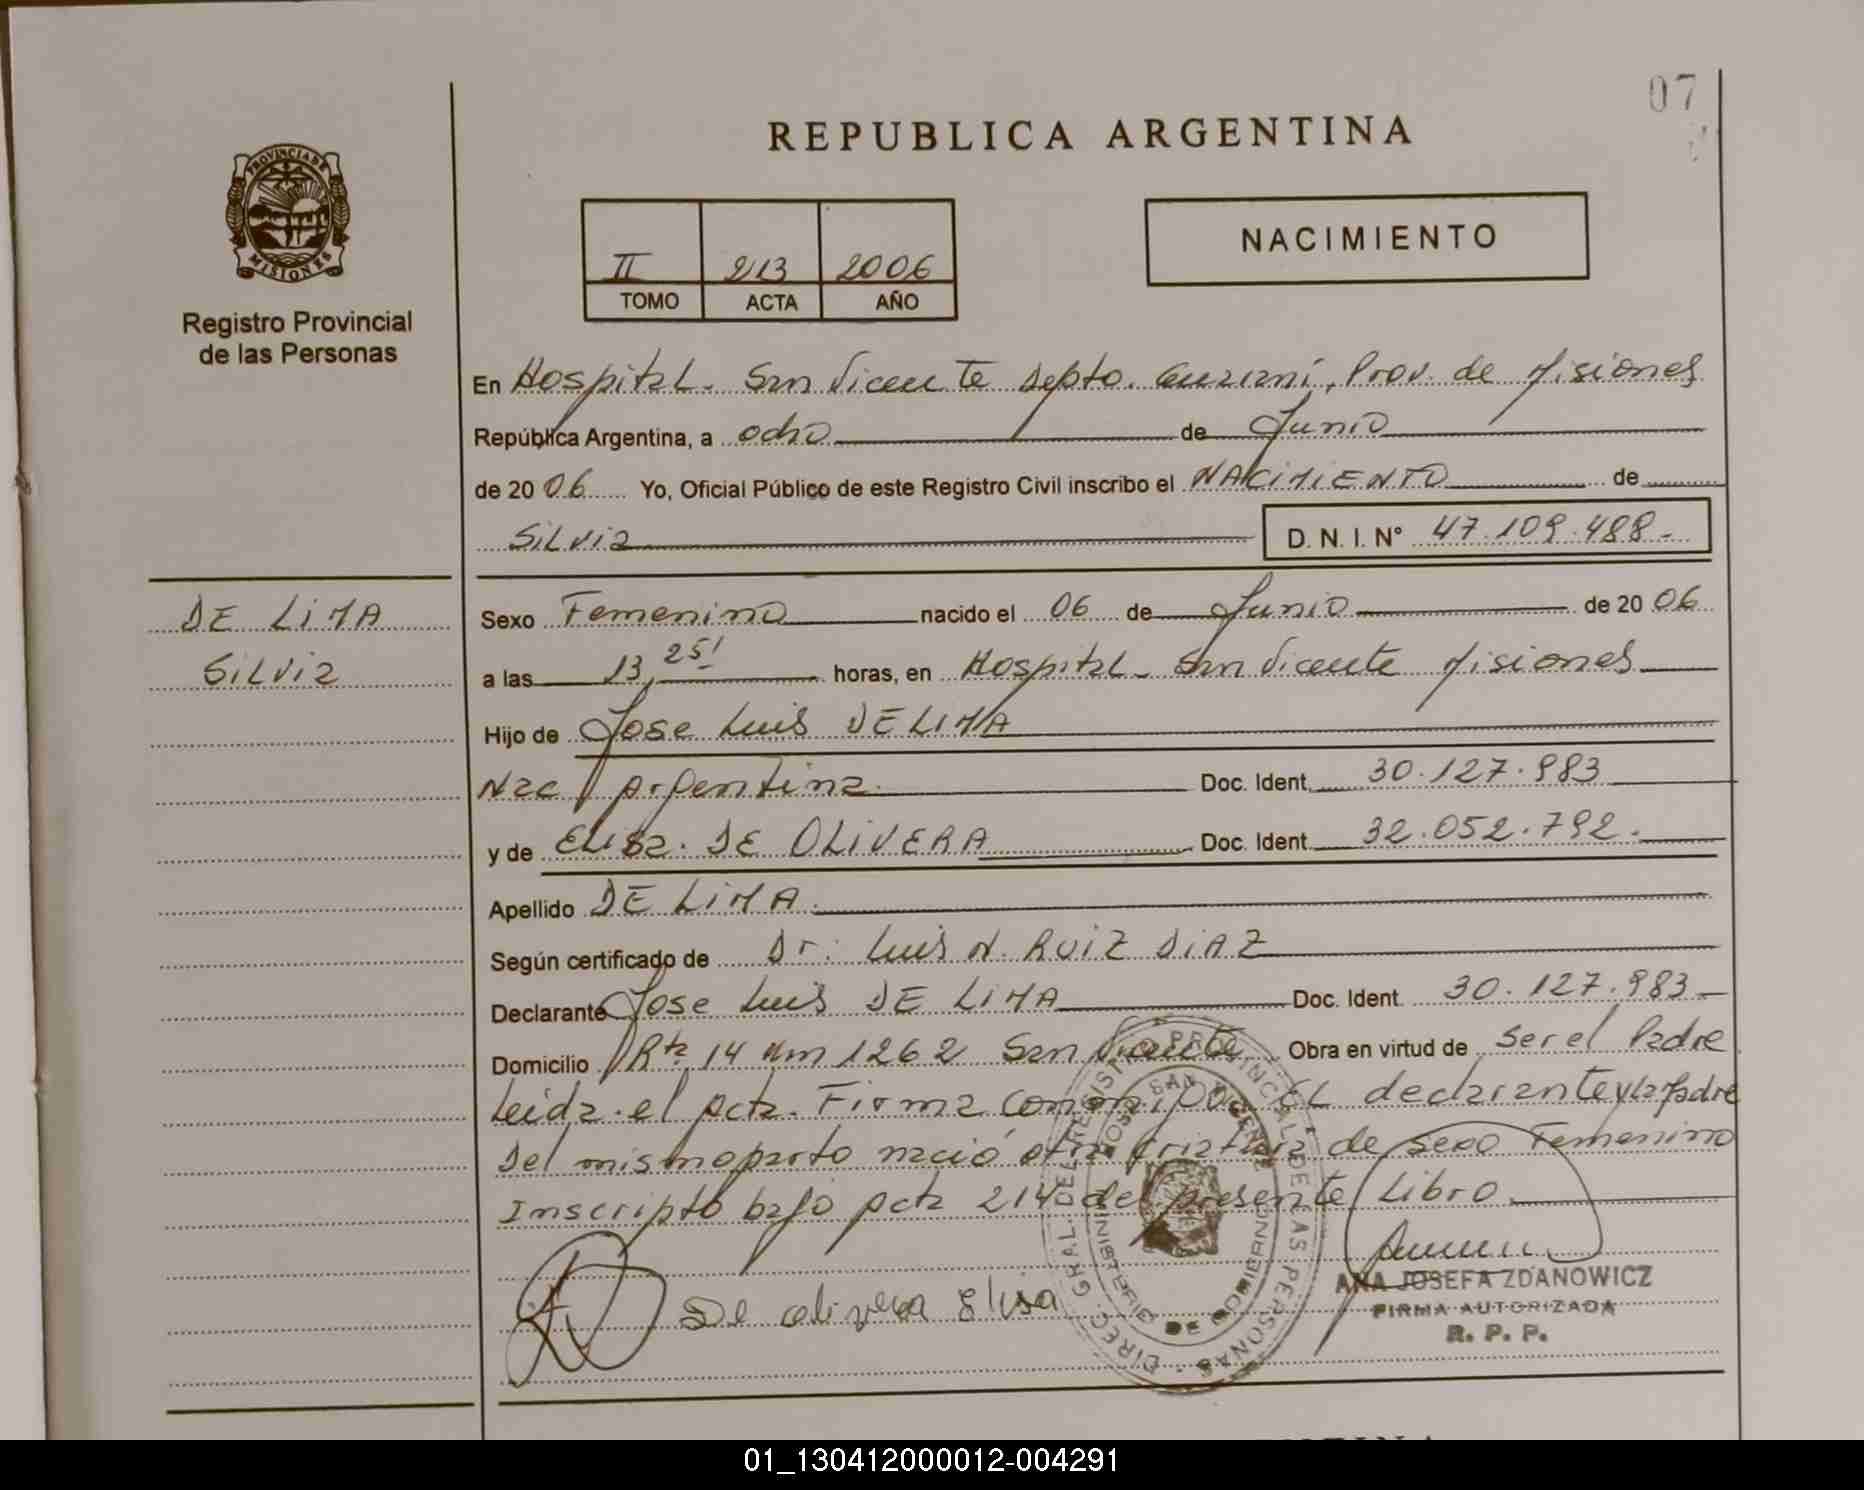 07
REPUBLICA ARGENTINA
PROVINCIA DE
MISIONES
Registro Provincial
de las Personas
II 213 2006
TOMO ACTA AÑO
NACIMIENTO
En Hospital - San Vicente Depto. Guaraní, Prov. de Misiones
República Argentina, a ocho de Junio
de 2006 Yo, Oficial Público de este Registro Civil inscribo el NACIMIENTO de
Silvia D. N. I. N° 47.109.488-
DE LIMA
Silvia
Sexo Femenino nacido el 06 de Junio de 2006
a las 13,25' horas, en Hospital - San Vicente Misiones
Hijo de Jose Luis DE LIMA
Nac Argentina Doc. Ident. 30.127.983
y de Elisa. DE OLIVERA Doc. Ident. 32.052.792.
Apellido DE LIMA
Según certificado de Dr. Luis N. RUIZ DIAZ
Declarante Jose Luis DE LIMA Doc. Ident. 30.127.983-
Domicilio Rta 14 Km 1262 San Vicente Obra en virtud de Ser el Padre
Leida el Acta. Firma conmigo EL declarante y la Madre
Del mismo parto nació otra criatura de sexo Femenino
Inscripto bajo Acta 214 del presente Libro
De olivera Elisa
DIREC. GRAL. DEL REGISTRO PROVINCIAL DE LAS PERSONAS
MINISTERIO DE GOBIERNO
HOSP. SAN VICENTE
ANA JOSEFA ZDANOWICZ
FIRMA AUTORIZADA
R. P. P.
01_130412000012-004291